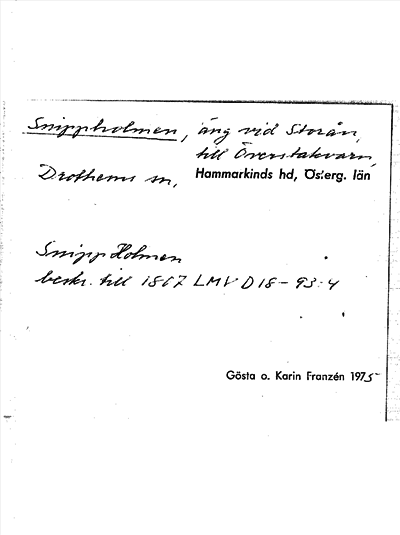 Snippholmen, äng vid Storån,
till Överstakvarn,
Drothems sn, Hammarkinds hd, Österg. län
Snipp Holmen
beskr. till 1867 LMV D18-93:4
Gösta o. Karin Franzén 1975